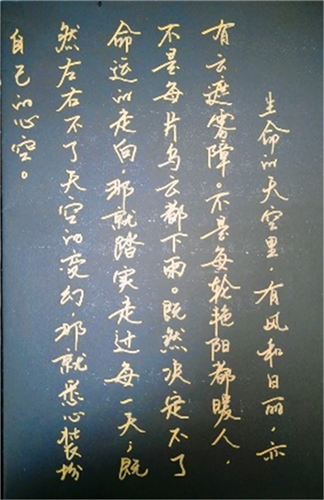 生命的天空里，有风和日丽，亦
有云遮雾障。不是每轮艳阳都暖人，
不是每片乌云都下雨。既然决定不了
命运的走向，那就踏实走过每一天；既
然左右不了天空的变幻，那就悉心装扮
自己的心空。